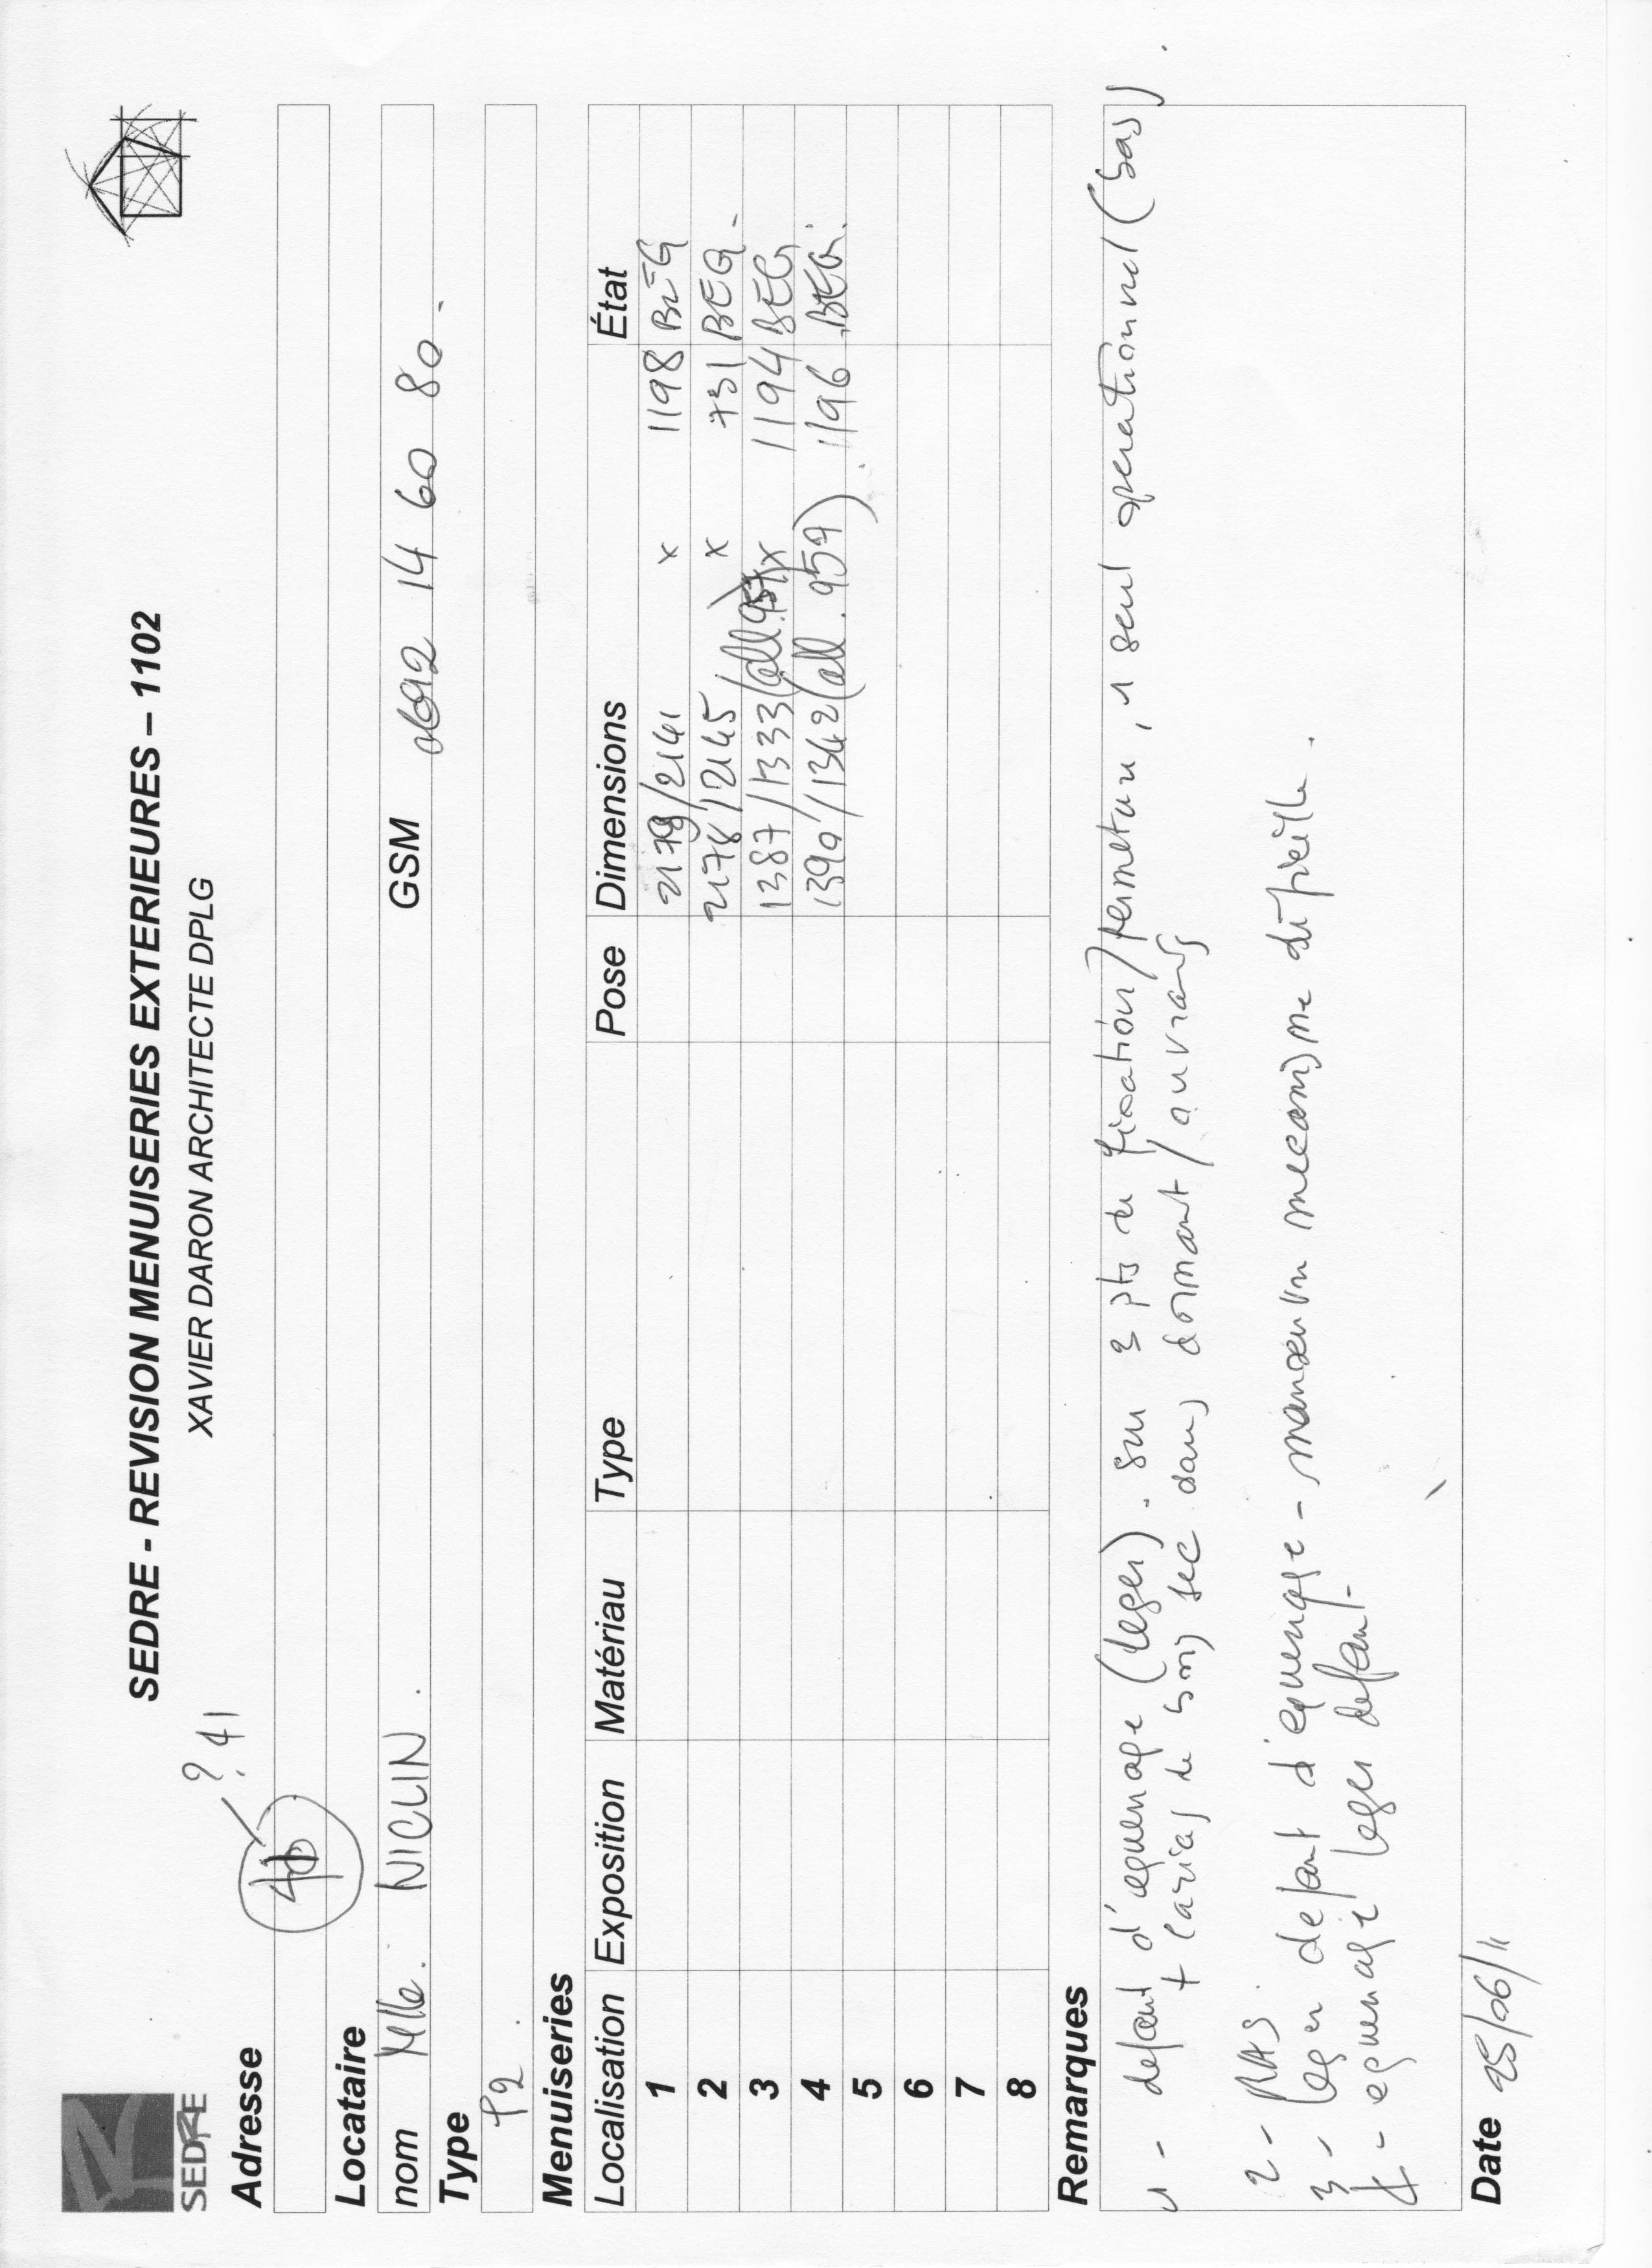 SEDRE
SEDRE - REVISION MENUISERIES EXTERIEURES – 1102
XAVIER DARON ARCHITECTE DPLG
Adresse
40 ? 41
Locataire
nom Mlle. NICLIN. GSM 0692 14 60 80.
Type
T2.
Menuiseries
Localisation Exposition Matériau Type Pose Dimensions État
1 2179/2141 x 1198 BEG
2 2178/2145 x 731 BEG -
3 1387/1333 (all. 957) x 1194 BEG
4 1390/1342 (all. 959). 1196 BEG.
5
6
7
8
Remarques
1 - defaut d'equerrage (leger). sur 3 pts de fixation/fermeture, 1 seul operationnel (bas)
+ carias de bois sec dans dormant/ouvrants
2 - RAS.
3 - leger defaut d'équerrage - manoeuvre mecanisme difficile.
4 - equerrage leger defaut -
Date 28/06/11